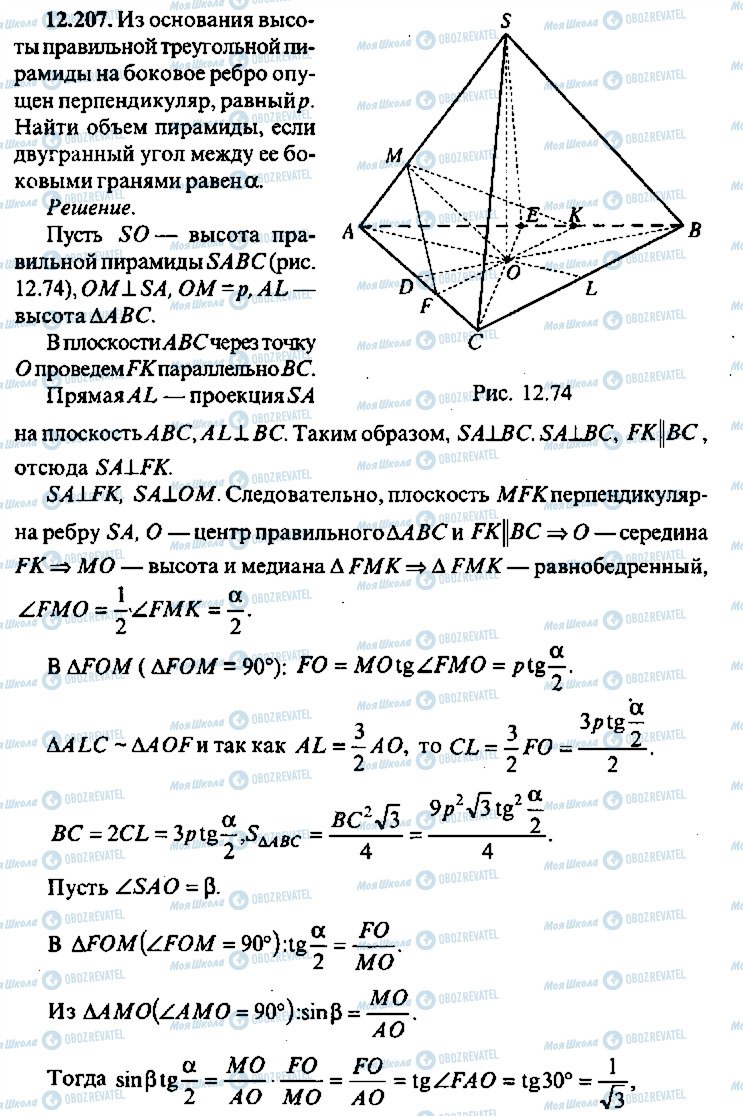 12.207. Из основания высо-
ты правильной треугольной пи-
рамиды на боковое ребро опу-
щен перпендикуляр, равный p.
Найти объем пирамиды, если
двугранный угол между ее бо-
ковыми гранями равен α.
Решение.
Пусть SO — высота пра-
вильной пирамиды SABC (рис.
12.74), OM⊥SA, OM = p, AL —
высота ΔABC.
В плоскости ABC через точку
O проведем FK параллельно BC.
Прямая AL — проекция SA
S
M
A
E
K
B
O
D
F
L
C
Рис. 12.74
на плоскость ABC, AL⊥BC. Таким образом, SA⊥BC. SA⊥BC, FK‖BC ,
отсюда SA⊥FK.
SA⊥FK, SA⊥OM. Следовательно, плоскость MFK перпендикуляр-
на ребру SA, O — центр правильного ΔABC и FK‖BC ⇒ O — середина
FK ⇒ MO — высота и медиана Δ FMK ⇒ Δ FMK — равнобедренный,
∠FMO = 1/2 ∠FMK = α/2.
В ΔFOM ( ΔFOM = 90°): FO = MO tg∠FMO = p tg α/2.
ΔALC ~ ΔAOF и так как AL = 3/2 AO, то CL = 3/2 FO = (3p tg α/2)/2.
BC = 2CL = 3p tg α/2, S_ΔABC = BC²√3/4 = (9p²√3 tg² α/2)/4.
Пусть ∠SAO = β.
В ΔFOM(∠FOM = 90°): tg α/2 = FO/MO.
Из ΔAMO(∠AMO = 90°): sin β = MO/AO.
Тогда sin β tg α/2 = MO/AO · FO/MO = FO/AO = tg∠FAO = tg30° = 1/√3,
Моя Школа OBOZREVATEL